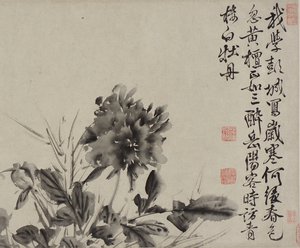 我學彭城寫歲寒何緣春色
忽黃檀正如三醉岳陽客時訪青
樓白牡丹